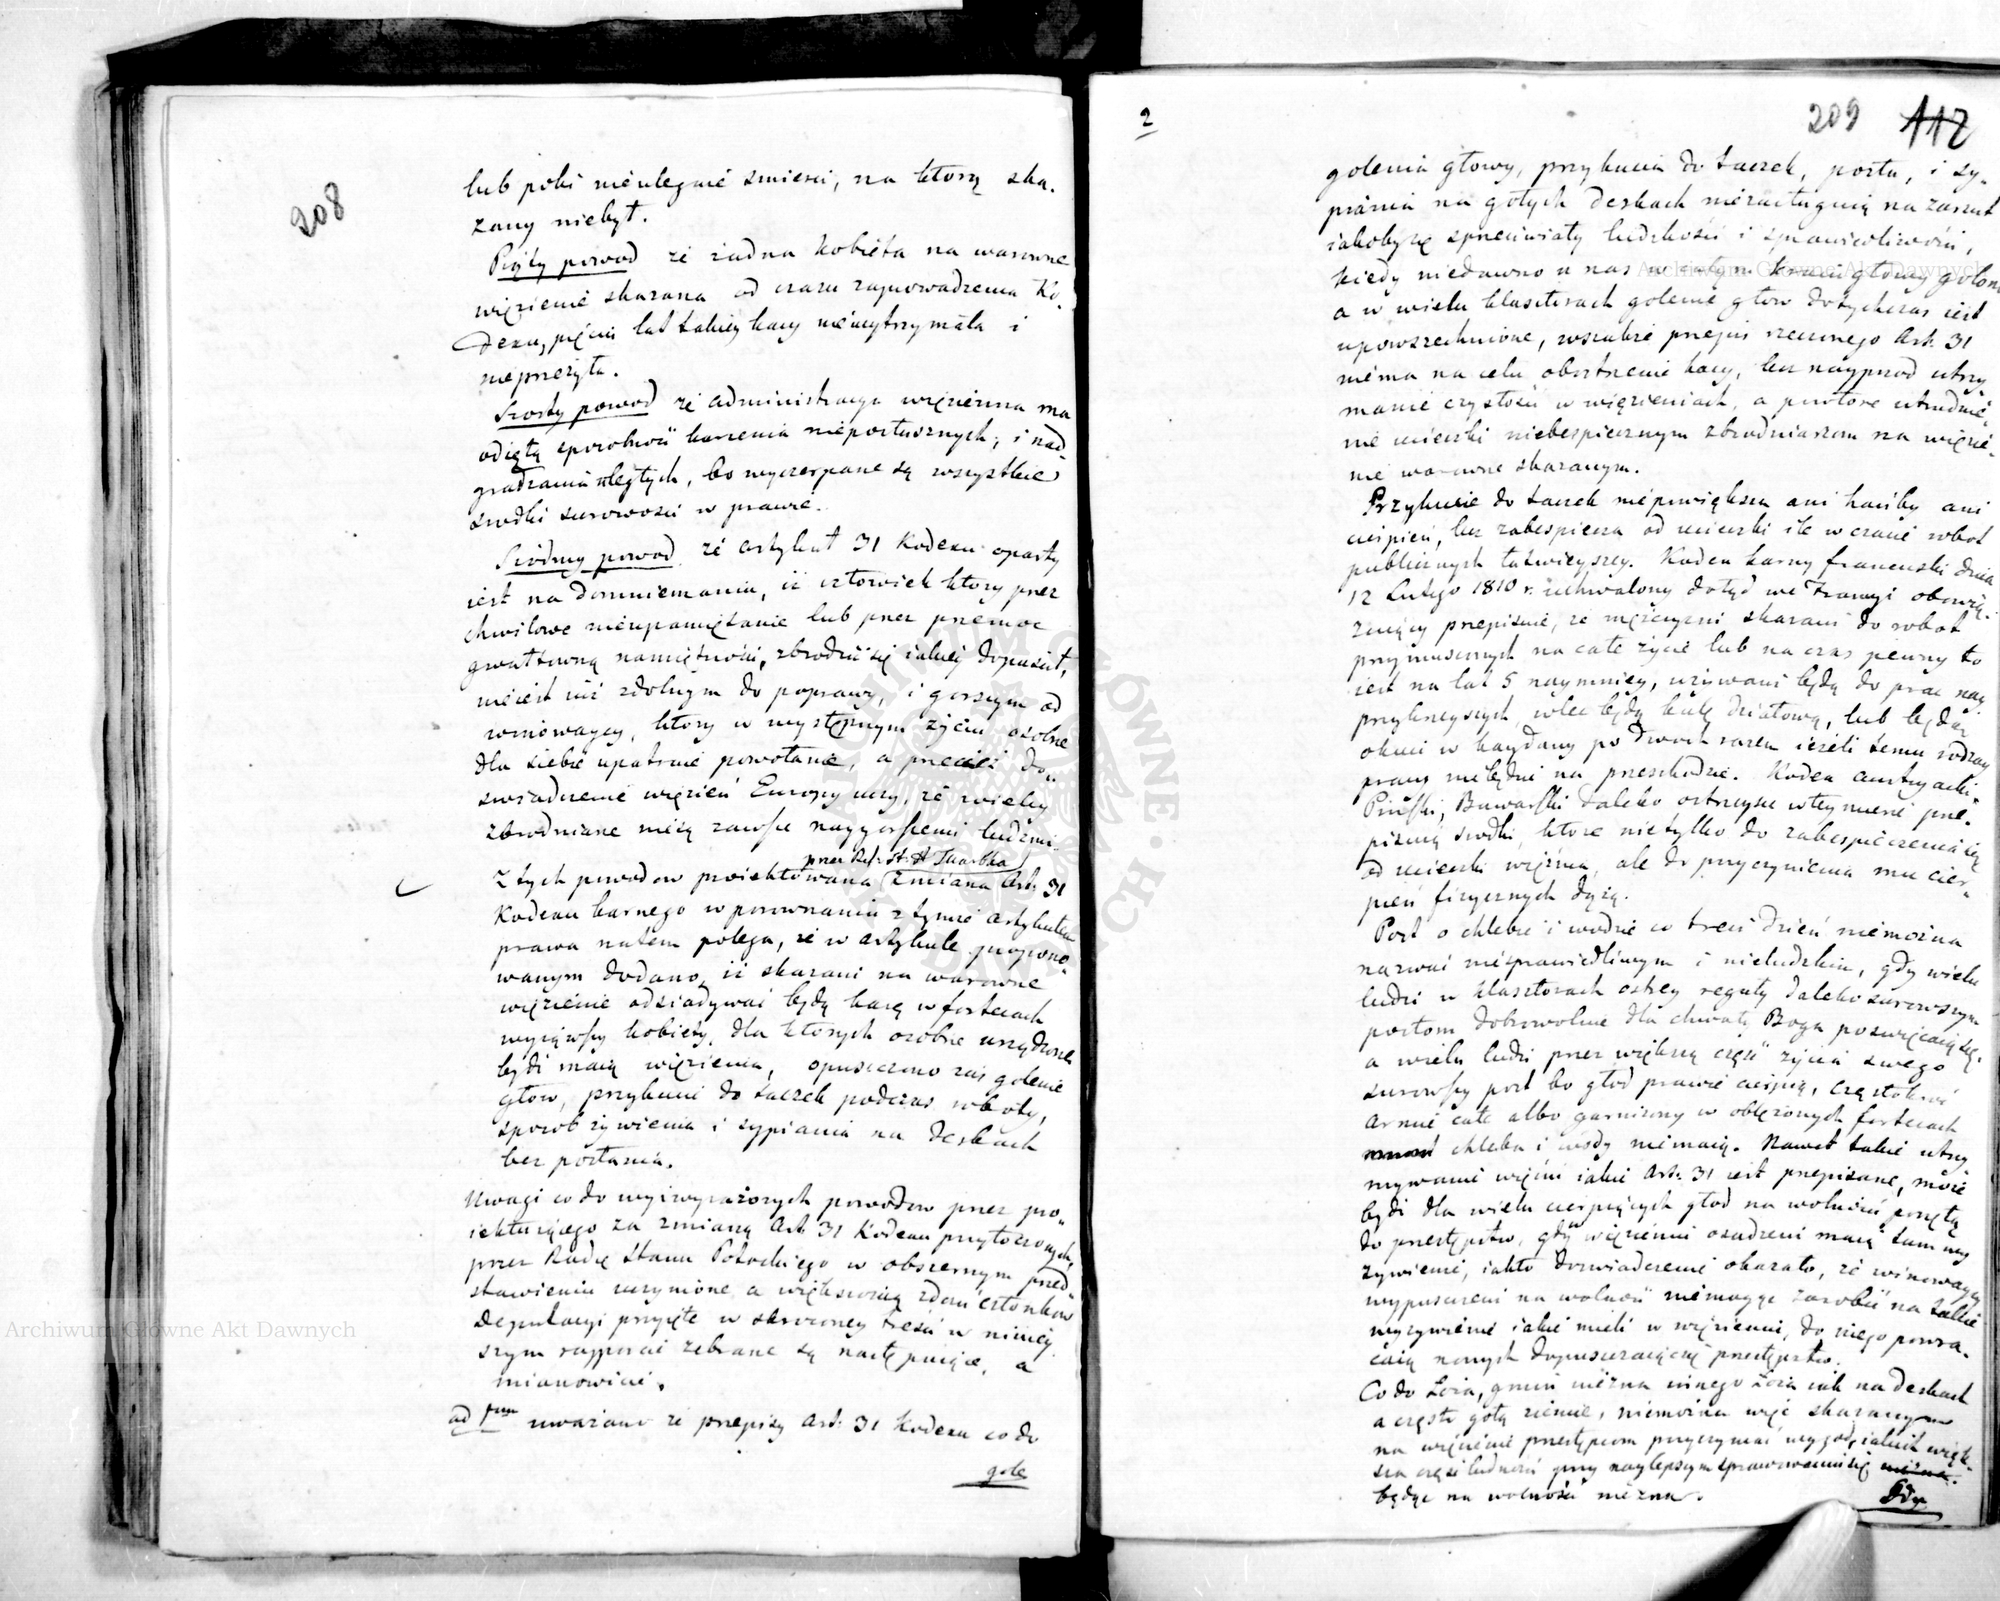 208
lub poki nieulegnie smierci, na którą ska-
zany niebył.
Piąty powod że żadna kobieta na warowne
więzienie skazana od czasu zaprowadzenia Ko-
dexu, pięciu lat takiey kary niewytrzymała i
nieprzeżyła.
Szosty powod że administracya więzienna ma
odiętą sposobność karania nieposłusznych, i nad-
gradzania uległych, bo wyczerpane są wszystkie
srodki surowosci w prawie.
Siodmy powod że artykuł 31 Kodexu oparty
iest na domniemaniu, iż człowiek który przez
chwilowe nieupamiętanie lub przez przemoc
gwałtowną namiętności, zbrodni się iakiey dopuscił,
nieiest iuż zdolnym do poprawy, i gorszym od
winowaycy, który w występnym życiu osobne
dla siebie upatruie powołanie, a przecież do-
swiadczenie więzień Europy uczy, że wielcy
zbrodniarze nie są zawsze naygorszemi ludzmi.
przez Ref: St: H Skarbka
Z tych powodow proiektowana zmiana Art: 31
Kodexu karnego w porownaniu z tymże artykułem
prawa na tem polega, że w artykule propono-
wanym dodano, iż skazani na warowne
więzienie odsiadywać będą karę w fortecach
wyiąwszy kobiety, dla których osobne urządzone
bydź maią więzienia, opuszczono zaś golenie
głow, przykucie do taczek podczas roboty,
sposob żywienia i sypiania na deskach
bez posłania.
Uwagi co do wyżwyrażonych powodow przez pro-
iektuiącego za zmianą Art: 31 Kodexu przytoczonych,
przez Radcę Stanu Potockiego w obszernym przed-
stawieniu uczynione, a większością zdań członków
Deputacyi przyięte w skroconey tresci w nineiy
szym rapporcie zebrane są następuiące, a
mianowicie.
ad 1mm uważano że przepisy Art: 31 Kodexu co do
gole
2
209 112
golenia głowy, przykucia do taczek, postu, i sy-
piania na gołych deskach niezasługuią na zarzut
iakoby się sprzeciwiały ludzkości i sprawiedliwości,
kiedy niedawno u nas w całym kraiu głowy golono
a w wielu klasztorach golenie głow dotychczas iest
upowszechnione, wszakże przepis rzeczonego Art: 31
niema na celu obostrzenie kary, lecz nayprzod utrzy-
manie czystości w więzieniach, a powtore utrudnie-
nie ucieczki niebezpiecznym zbrodniarzom na więzie-
nie warowne skazanym.
Przykucie do taczek niepowiększa ani hańby ani
cierpień, lecz zabespiecza od ucieczki ile w czasie robot
publicznych łatwieyszey. Kodex karny francuski dnia
12 Lutego 1810 r. uchwalony dotąd we Francyi obowią-
zuiący przepisuie, że mężczyzni skazani do robot
przymusowych na całe życie lub na czas pewny to
iest na lat 5 naymniey, używani będą do prac nay-
przykrzeyszych, wlec będą kulę działową, lub będą
okuci w kaydany po dwoch razem ieżeli temu rodzay
pracy niebędzie na przeszkodzie. Kodex austryacki,
Pruski, Bawarski daleko ostrzeysze w tey mierze prze-
pisuią srodki, ktore nietylko do zabespieczenia się
od ucieczki więźnia, ale do przyczynienia mu cier-
pień fizycznych dążą.
Post o chlebie i wodzie co trzeci dzień niemożna
nazwać niesprawiedliwym i nieludzkim, gdy wielu
ludzi w klasztorach ostrey reguły daleko surowszym
postom dobrowolnie dla chwały Boga poswięcaią się,
a wielu ludzi przez większą część życia swego
surowszy post bo głod prawie cierpią, częstokroć
armie całe albo garnizony w oblężonych fortecach
chleba i wody niemaią. Nawet takie utrzy
mywanie więźni iakie Art: 31 iest przepisane, może
bydź dla wielu cierpiących głod na wolności ponętą
do przestępstw, gdy więzieniu osadzeni maią tam wy
żywienie, iakto doswiadczenie okazało, że winowaycy
wypuszczeni na wolność niemogąc zarobić na takie
wyżywienie iakie mieli w więzieniu, do niego powra-
caią nowych dopuszczaiąc się przestępstw.
Co do łoża, gmin niezna innego łoża iak na deskach
a często gołą ziemię, niemożna więc skazanym
na więzienie przestępcom przyczyniać wygod, iakich więk-
sza część ludności przy naylepszym sprawowaniu się
będąc na wolności niezna.
Gdy
Archiwum Główne Akt Dawnych
Archiwum Główne Akt Dawnych
ARCHIWUM GŁÓWNE AKT DAWNYCH